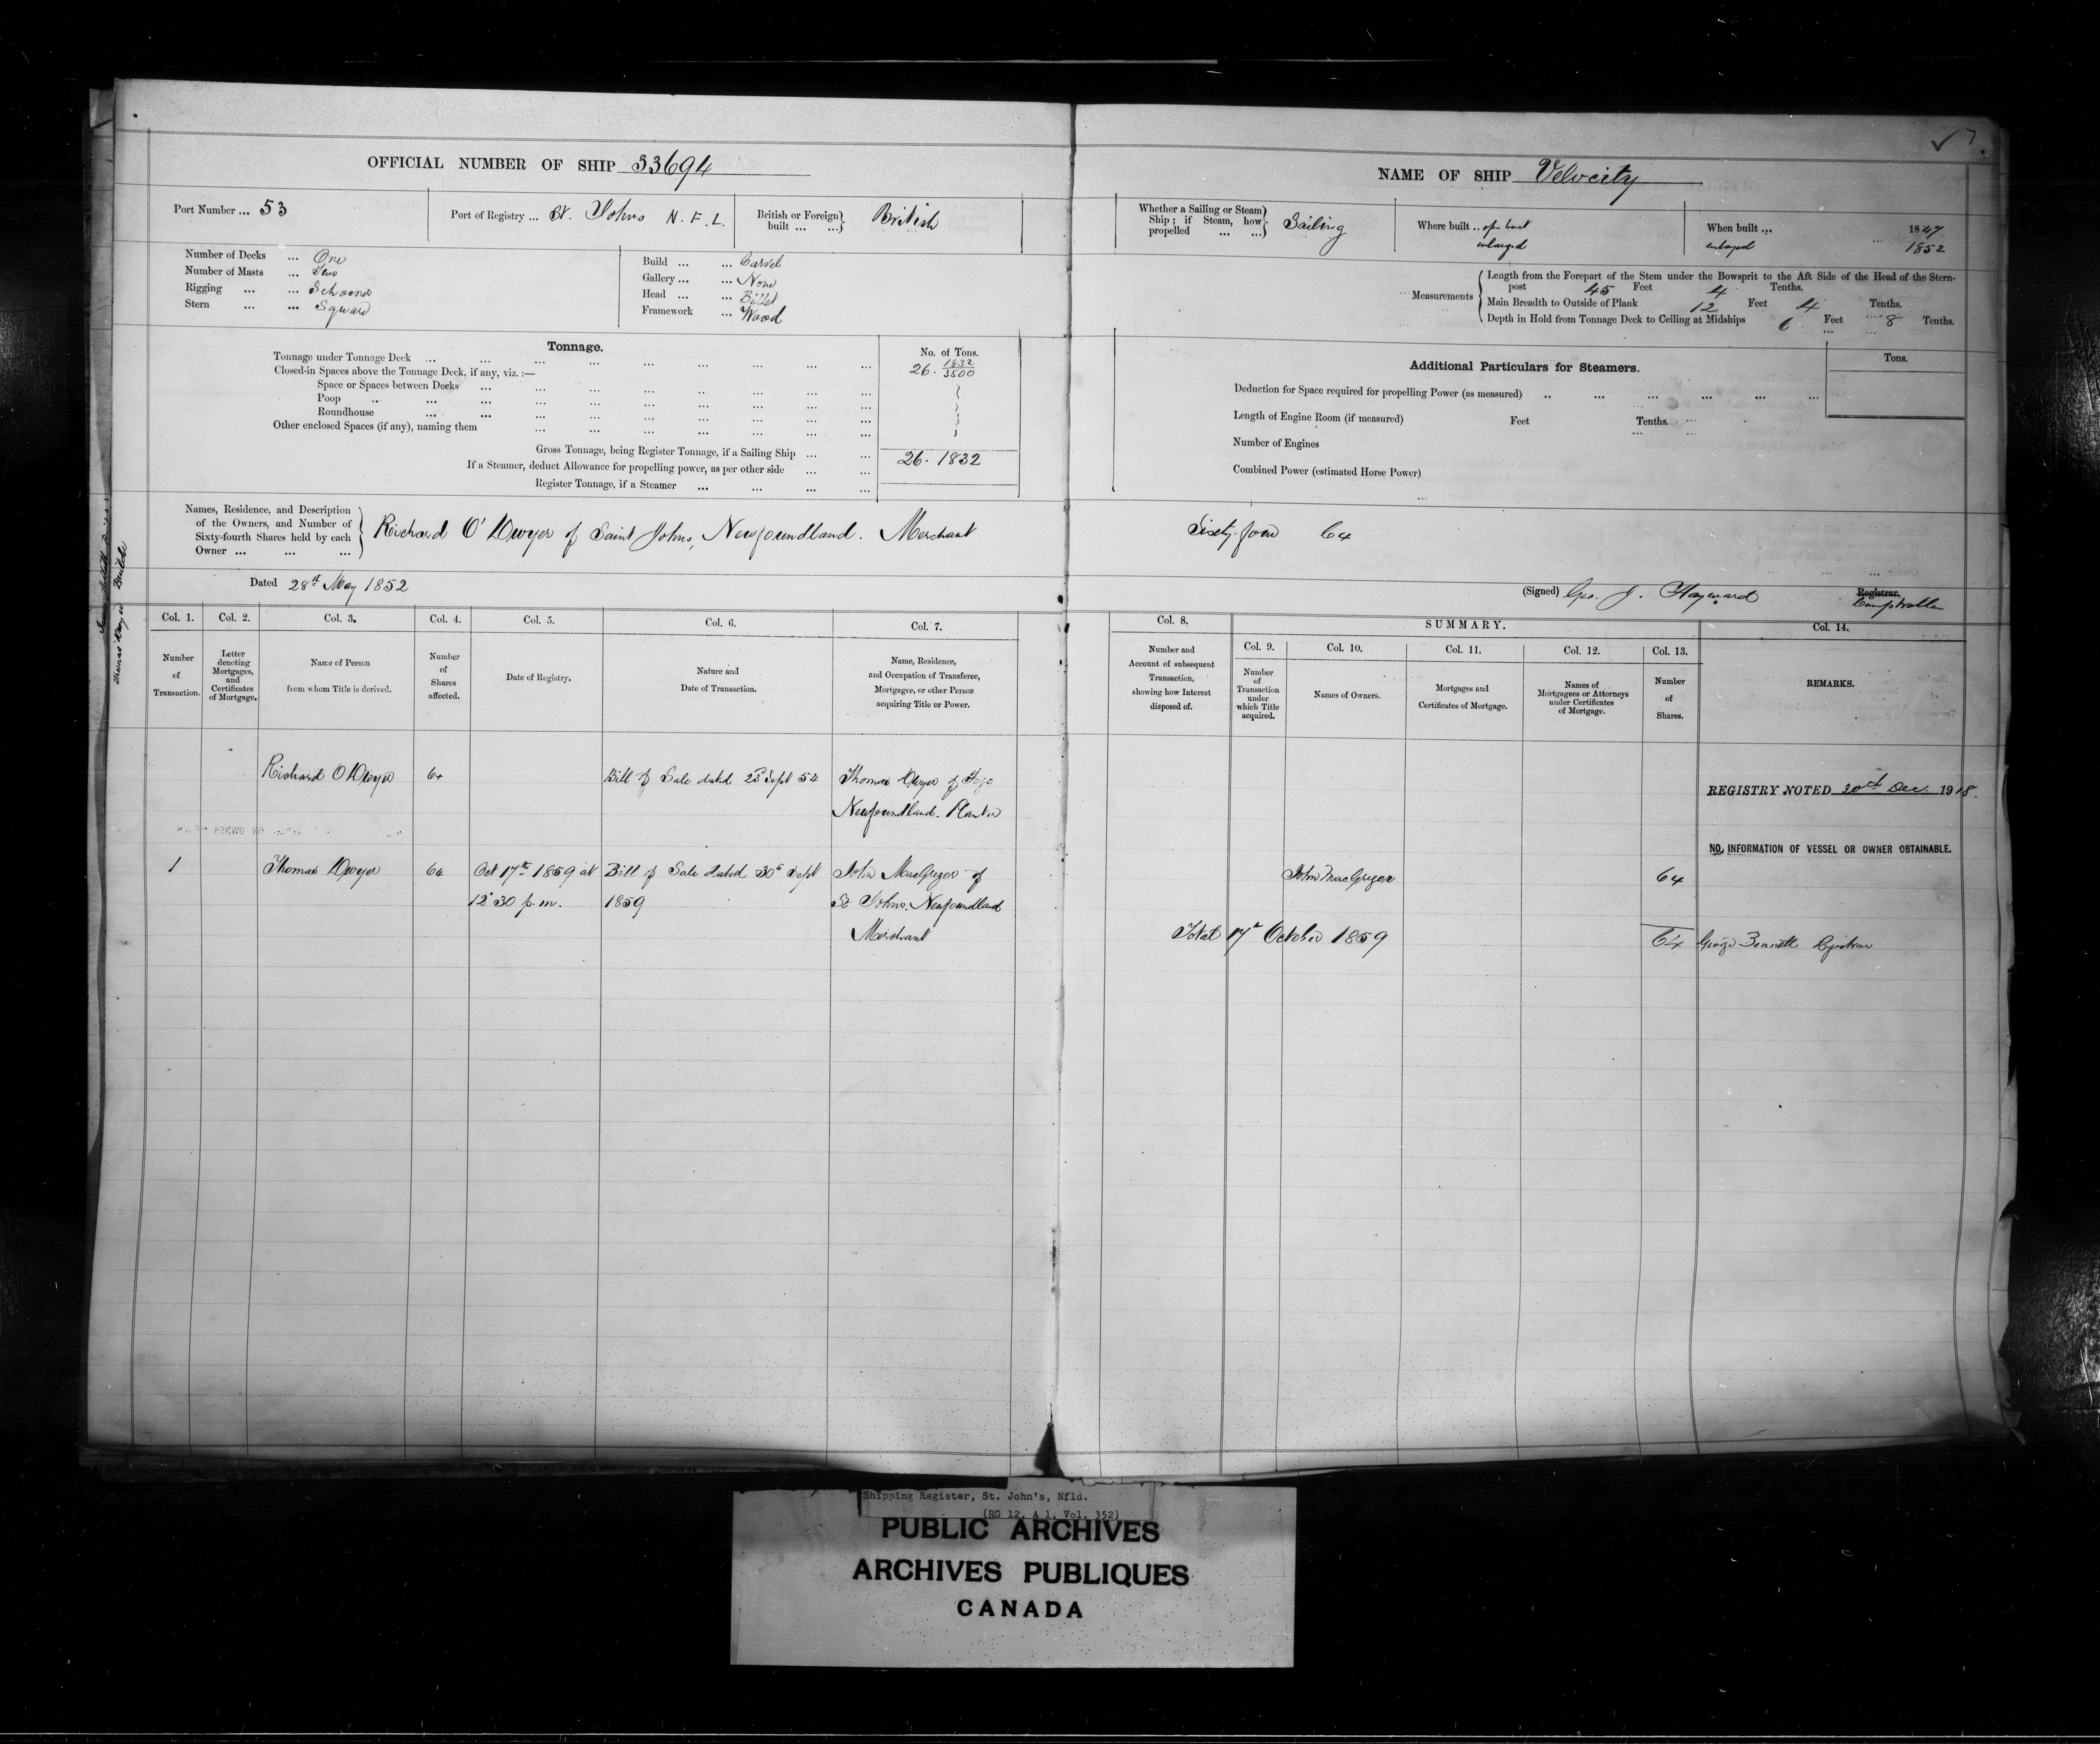 OFFICIAL NUMBER OF SHIP 33694
Port Number ... 53
Port of Registry ... St. Johns N. F. L.
British or Foreign built ... ... British
Number of Decks ... One
Number of Masts ... Two
Rigging ... ... Schooner
Stern ... ... Square
Build ... ... Carvel
Gallery ... ... None
Head ... ... Billet
Framework ... Wood
Tonnage.
No. of Tons.
Tonnage under Tonnage Deck ... 26. 1832/3500
Closed-in Spaces above the Tonnage Deck, if any, viz. :—
Space or Spaces between Decks
Poop
Roundhouse
Other enclosed Spaces (if any), naming them
Gross Tonnage, being Register Tonnage, if a Sailing Ship ... 26. 1832
If a Steamer, deduct Allowance for propelling power, as per other side
Register Tonnage, if a Steamer
Names, Residence, and Description of the Owners, and Number of Sixty-fourth Shares held by each Owner ...
Richard O'Dwyer of Saint Johns, Newfoundland. Merchant
Dated 28th May 1852
Thomas Builder
Col. 1. Col. 2. Col. 3. Col. 4. Col. 5. Col. 6. Col. 7.
Number of Transaction.
Letter denoting Mortgages, and Certificates of Mortgage.
Name of Person from whom Title is derived.
Number of Shares affected.
Date of Registry.
Nature and Date of Transaction.
Name, Residence, and Occupation of Transferee, Mortgagee, or other Person acquiring Title or Power.
Richard O Dwyer 64 Bill of Sale dated Sept 54 Thomas Dwyer of Fogo
Newfoundland. Planter
1 Thomas Dwyer 64 Oct 17th 1859 at Bill of Sale dated 30th Sept John MacGregor of
12 30 p.m. 1859 St Johns. Newfoundland
Merchant
NAME OF SHIP Velocity
Whether a Sailing or Steam Ship ; if Steam, how propelled ... ... Sailing
Where built .. open boat
enlarged
When built ... 1847
enlarged ... 1852
Measurements
Length from the Forepart of the Stem under the Bowsprit to the Aft Side of the Head of the Stern-
post 45 Feet 4 Tenths.
Main Breadth to Outside of Plank 12 Feet 4 Tenths.
Depth in Hold from Tonnage Deck to Ceiling at Midships 6 Feet 8 Tenths.
Additional Particulars for Steamers.
Tons.
Deduction for Space required for propelling Power (as measured)
Length of Engine Room (if measured) Feet Tenths.
Number of Engines
Combined Power (estimated Horse Power)
Sixty four 64
(Signed) Geo. J. Hayward Registrar.
Comptroller
Col. 8.
SUMMARY.
Col. 14.
Col. 9. Col. 10. Col. 11. Col. 12. Col. 13.
Number and Account of subsequent Transaction, showing how Interest disposed of.
Number of Transaction under which Title acquired.
Names of Owners.
Mortgages and Certificates of Mortgage.
Names of Mortgagees or Attorneys under Certificates of Mortgage.
Number of Shares.
REMARKS.
REGISTRY NOTED 20th Dec. 1918.
NO INFORMATION OF VESSEL OR OWNER OBTAINABLE.
John MacGregor 64
Total 17th October 1859 64 George Bennett Registrar
Shipping Register, St. John's, Nfld.
(RG 12, A 1, Vol. 352)
PUBLIC ARCHIVES
ARCHIVES PUBLIQUES
CANADA